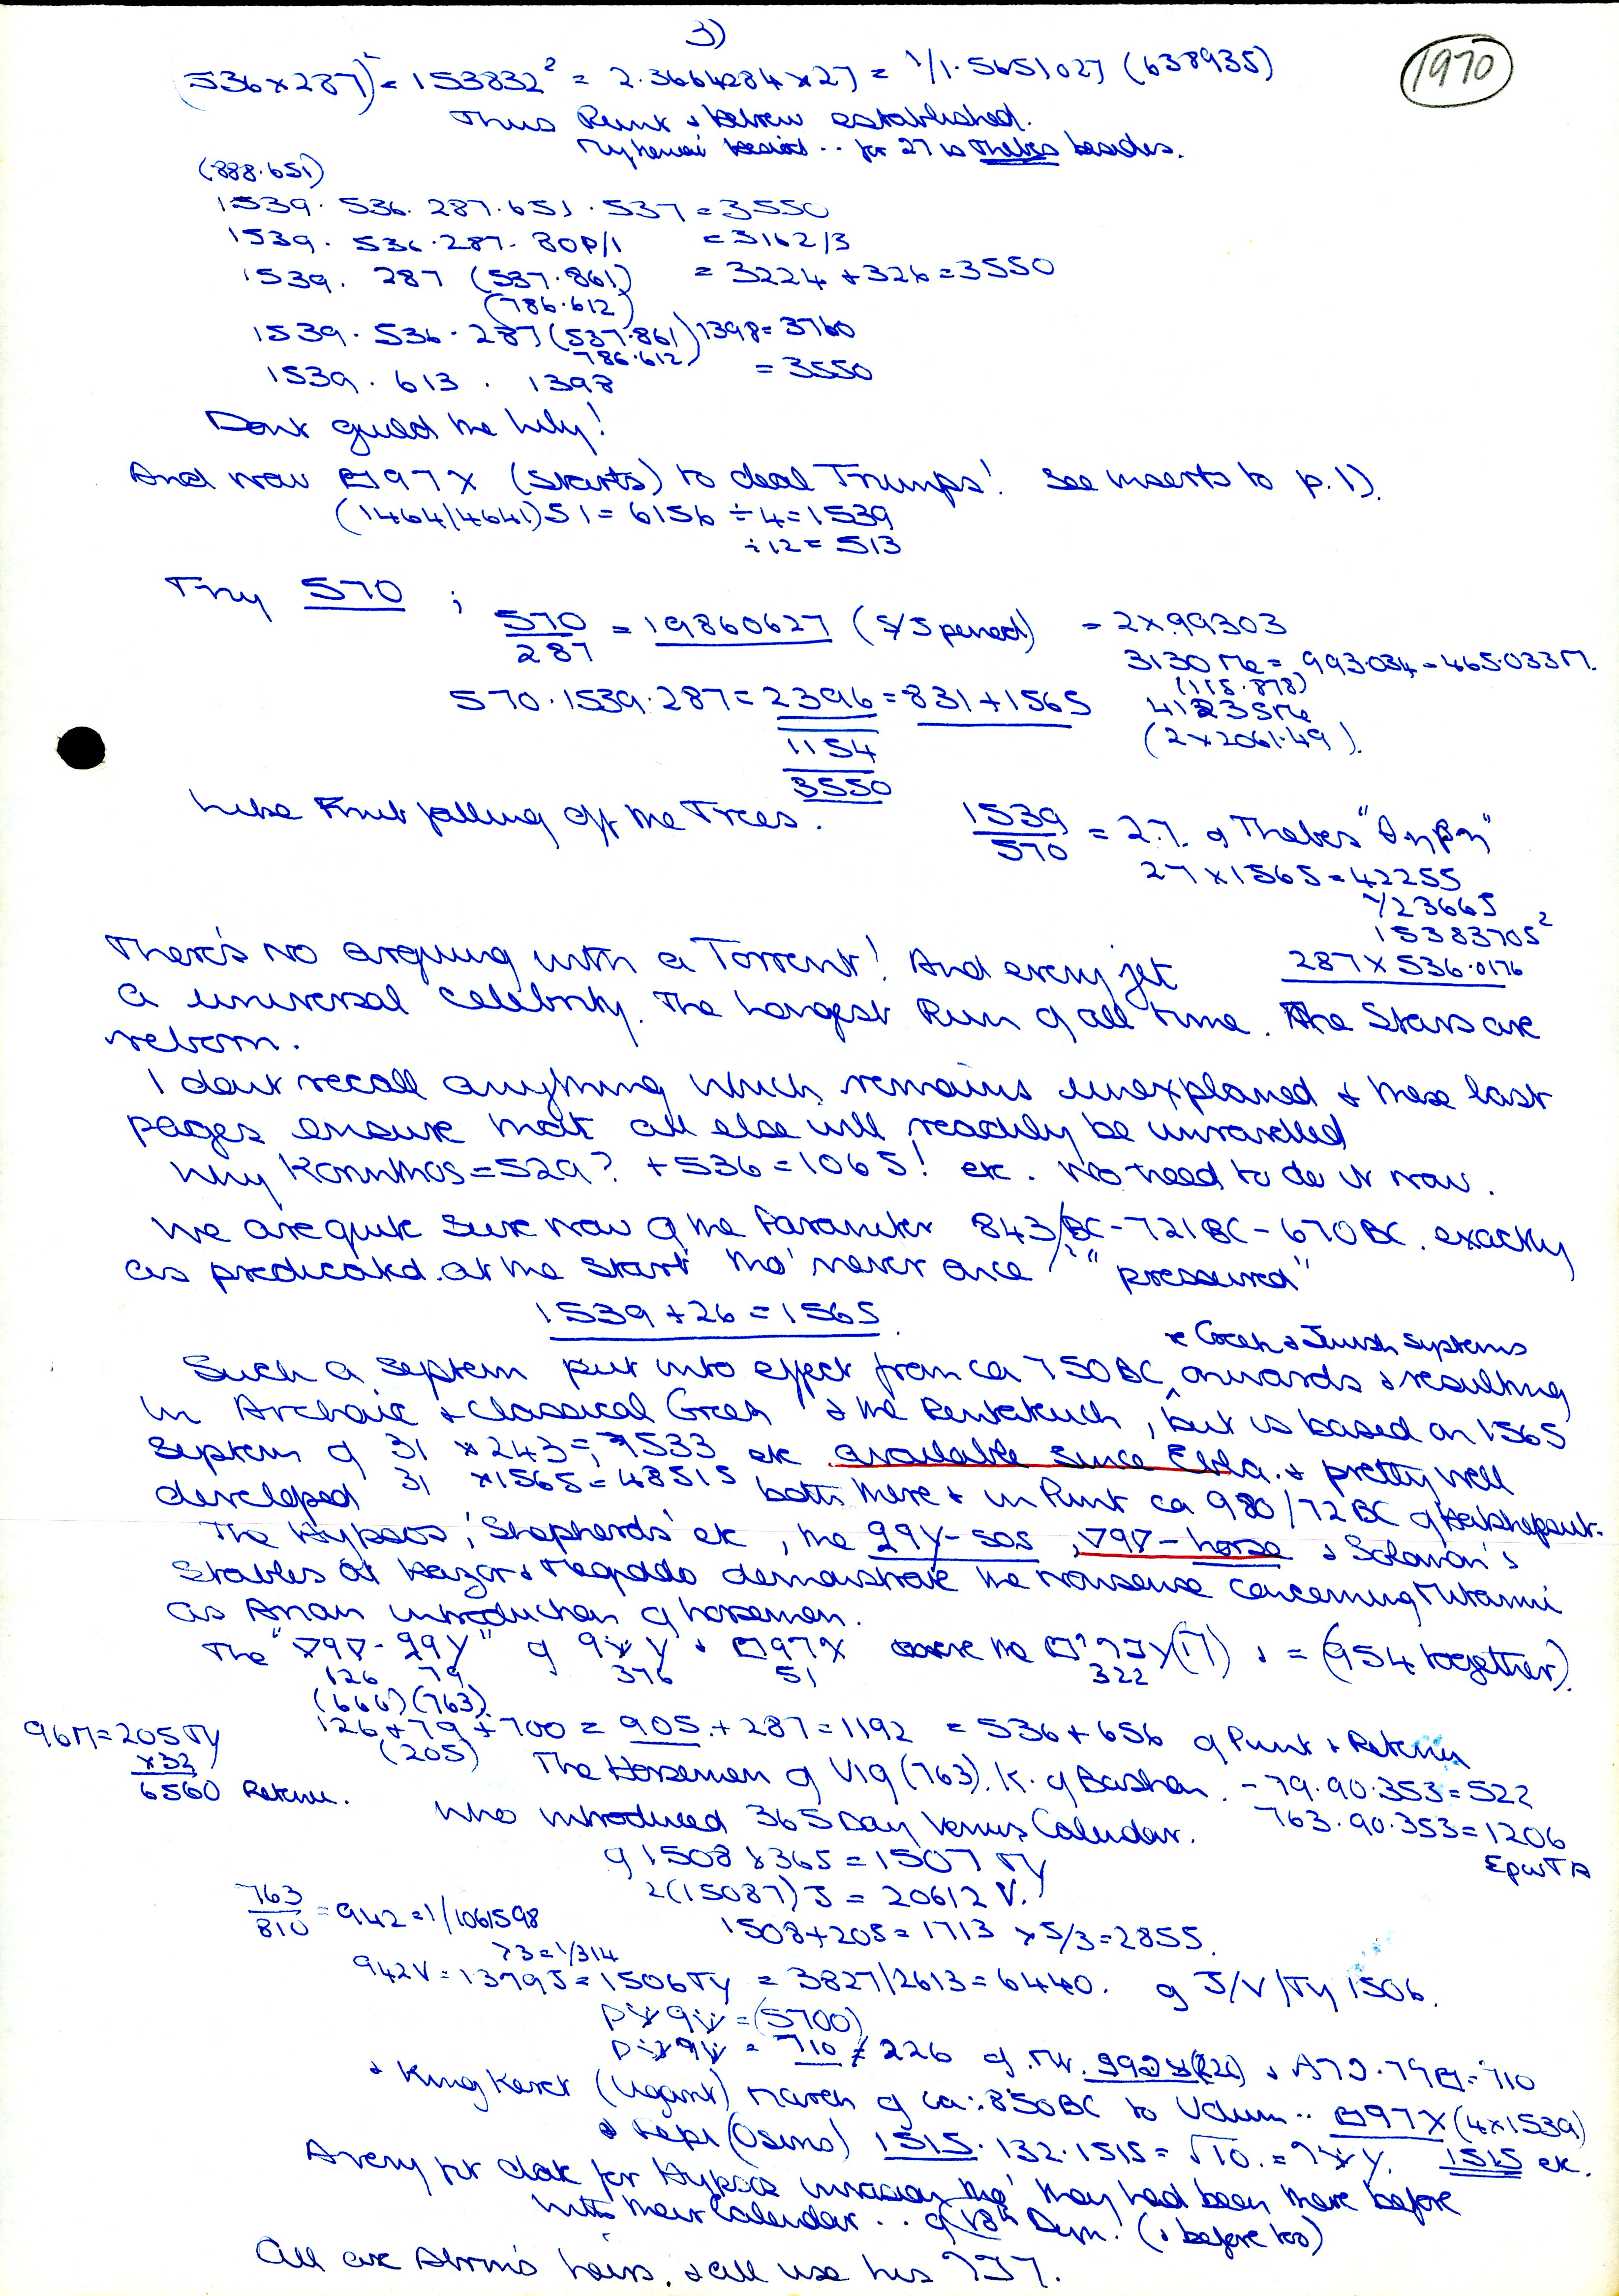 3)
1970
(536×287)² = 153832² = 2.3664284×27 = 1/1.5651027 (638935)
Thus Punt & Hebrew established.
.. for 27 is Thebes besides.
(888.651)
1539. 536. 287. 651. 537 = 3550
1539. 536. 287. BOP/1 = 3162/3
1539. 287 (537.861) = 3224 + 326 = 3550
(786.612)
1539. 536. 287 (537.861) 1398 = 3760
786.612
1539. 613. 1398 = 3550
Dont guild the lily!
And now (starts) to deal Trumps! see inserts to p. 1).
(1464/4641) 51 = 6156 ÷ 4 = 1539
÷ 12 = 513
Try 570 ;
570/287 = 19860627 (S/S period) = 2×.99303
3130 Me = 993.034 = 465.033M.
(115.878)
570.1539.287 = 2396 = 831 + 1565
41235 Me
(2×2061.49).
1154
3550
Like Fruit falling off the Trees.
1539/570 = 2.7. of Thebes "Θηβη"
27×1565 = 42255
1/23665
15383705²
287×536.0176
There's no arguing with a Torrent! And every jet
a universal celebrity. The Longest Run of all time. The Stars are
reborn.
I dont recall anything which remains unexplained & these last
pages ensure that all else will readily be unravelled
Why Korinthos = 529? + 536 = 1065! etc. No need to do it now.
We are quite sure now of the Parameter 843/BC - 721BC - 670BC. exactly
as predicated at the start tho' never once "pressured"
1539 + 26 = 1565.
& Greek & Jewish systems
Such a system put into effect from ca 750BC onwards & resulting
in Archaic & Classical Greek & the Pentateuch, but is based on 1565
system of 31 × 243 = 7533 etc available since Ebla. & pretty well
developed 31 × 1565 = 48515 both there & in Punt ca 980/72 BC of Hatshepsut.
The Hyksos, 'Shepherds' etc, the - sos, - horse & Solomon's
Stables at Hazor & Megiddo demonstrate the nonsense concerning Mitanni
as Arian introduction of horsemen.
The of & (17) & = (954 together).
126 79 376 51 322
(666) (763)
126 + 79 + 700 = 905. + 287 = 1192 = 536 + 656 of Punt & Retenu
(205)
96M = 205 TY
×32
6560 Retenu.
The Horsemen of (763). K. of Bashan. - 79.90.353 = 522
who introduced 365 Day Venus Calendar. 763.90.353 = 1206
ΕρωΤΑ
of 1508 × 365 = 1507 TY
2(15087) J = 20612 V.
763/810 = 942 = 1/1061598
1508 + 205 = 1713 × 5/3 = 2855.
×3 = 1/314
942V = 1379J = 1506TY = 3827/2613 = 6440. of J/V/TY 1506.
= (5700)
= 710 & 226 = 710
& King Keret (Ugarit) march of ca. 850BC to Udum .. (4×1539)
& Pepi (Osiris) 1515.132.1515 = √10. = 1515 etc.
A very fit date for Hyksos invasion tho' they had been there before
with their Calendar .. of 18th Dyn. (& before too)
All are Abram's heirs, & all use his